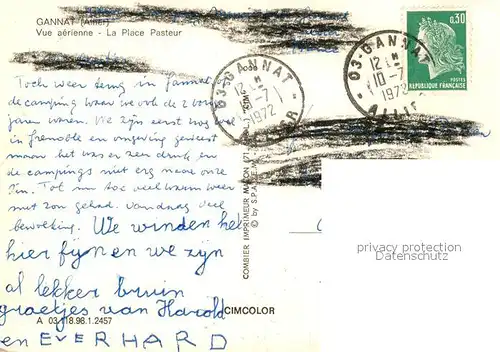 GANNAT (Allier)
Vue aérienne - La Place Pasteur
0,30
POSTES
REPUBLIQUE FRANÇAISE
03 GANNAT
12 H
10-7
1972
ALLIER
03 GANNAT
12 H
10-7
1972
ALLIER
Toch weer terug in Gannat op
de camping waar we ook de 2 vorige
jaren waren. We zijn eerst nog wel
in Grenoble en omgeving geweest
maar het was er zeer druk en
de campings niet erg naar onze
zin. Tot nu toe veel warm weer
met zon gehad. Vandaag veel
bewolking. We vinden het
hier fijn en we zijn
al lekker bruin
groetjes van Harold
en EVERHARD
COMBIER IMPRIMEUR MACON (71)
© by S.P.A.D.E.M.
CIMCOLOR
A 03.118.98.1.2457
privacy protection
Datenschutz